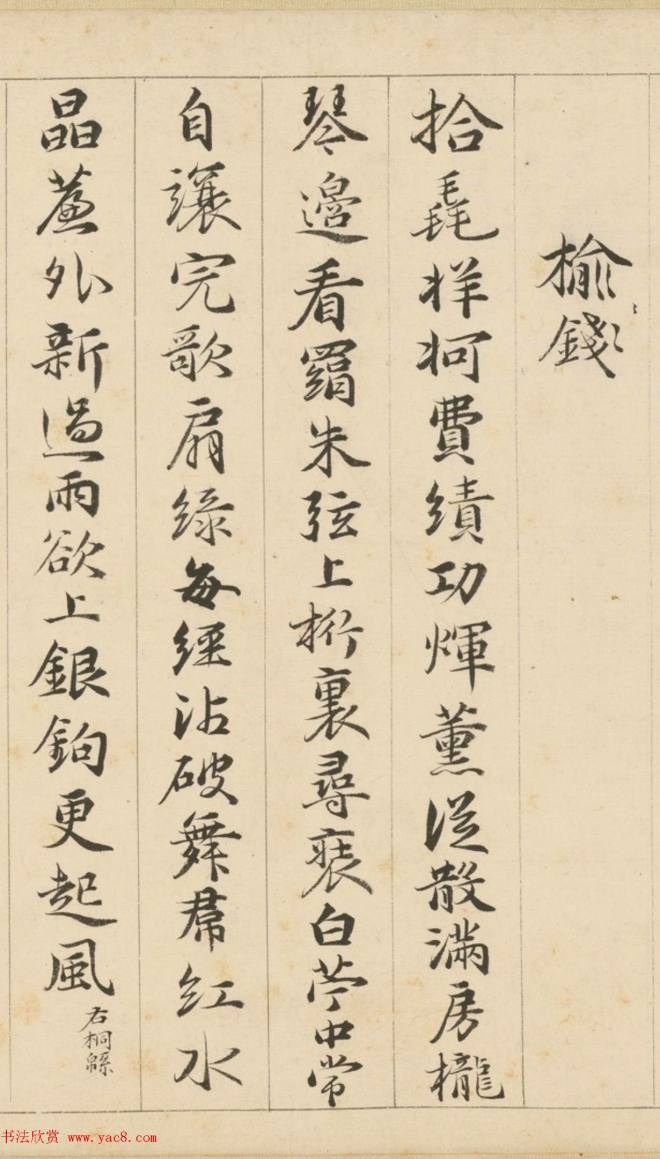 榆錢
拾毳牂牁費績功煇薰從散滿房櫳
琴邊看罥朱弦上桁裏尋裝白苧中常
自讓完歌扇綠每經沾破舞帬紅水
晶簾外新過雨欲上銀鉤更起風
右桐緜
书法欣赏 www.yac8.com